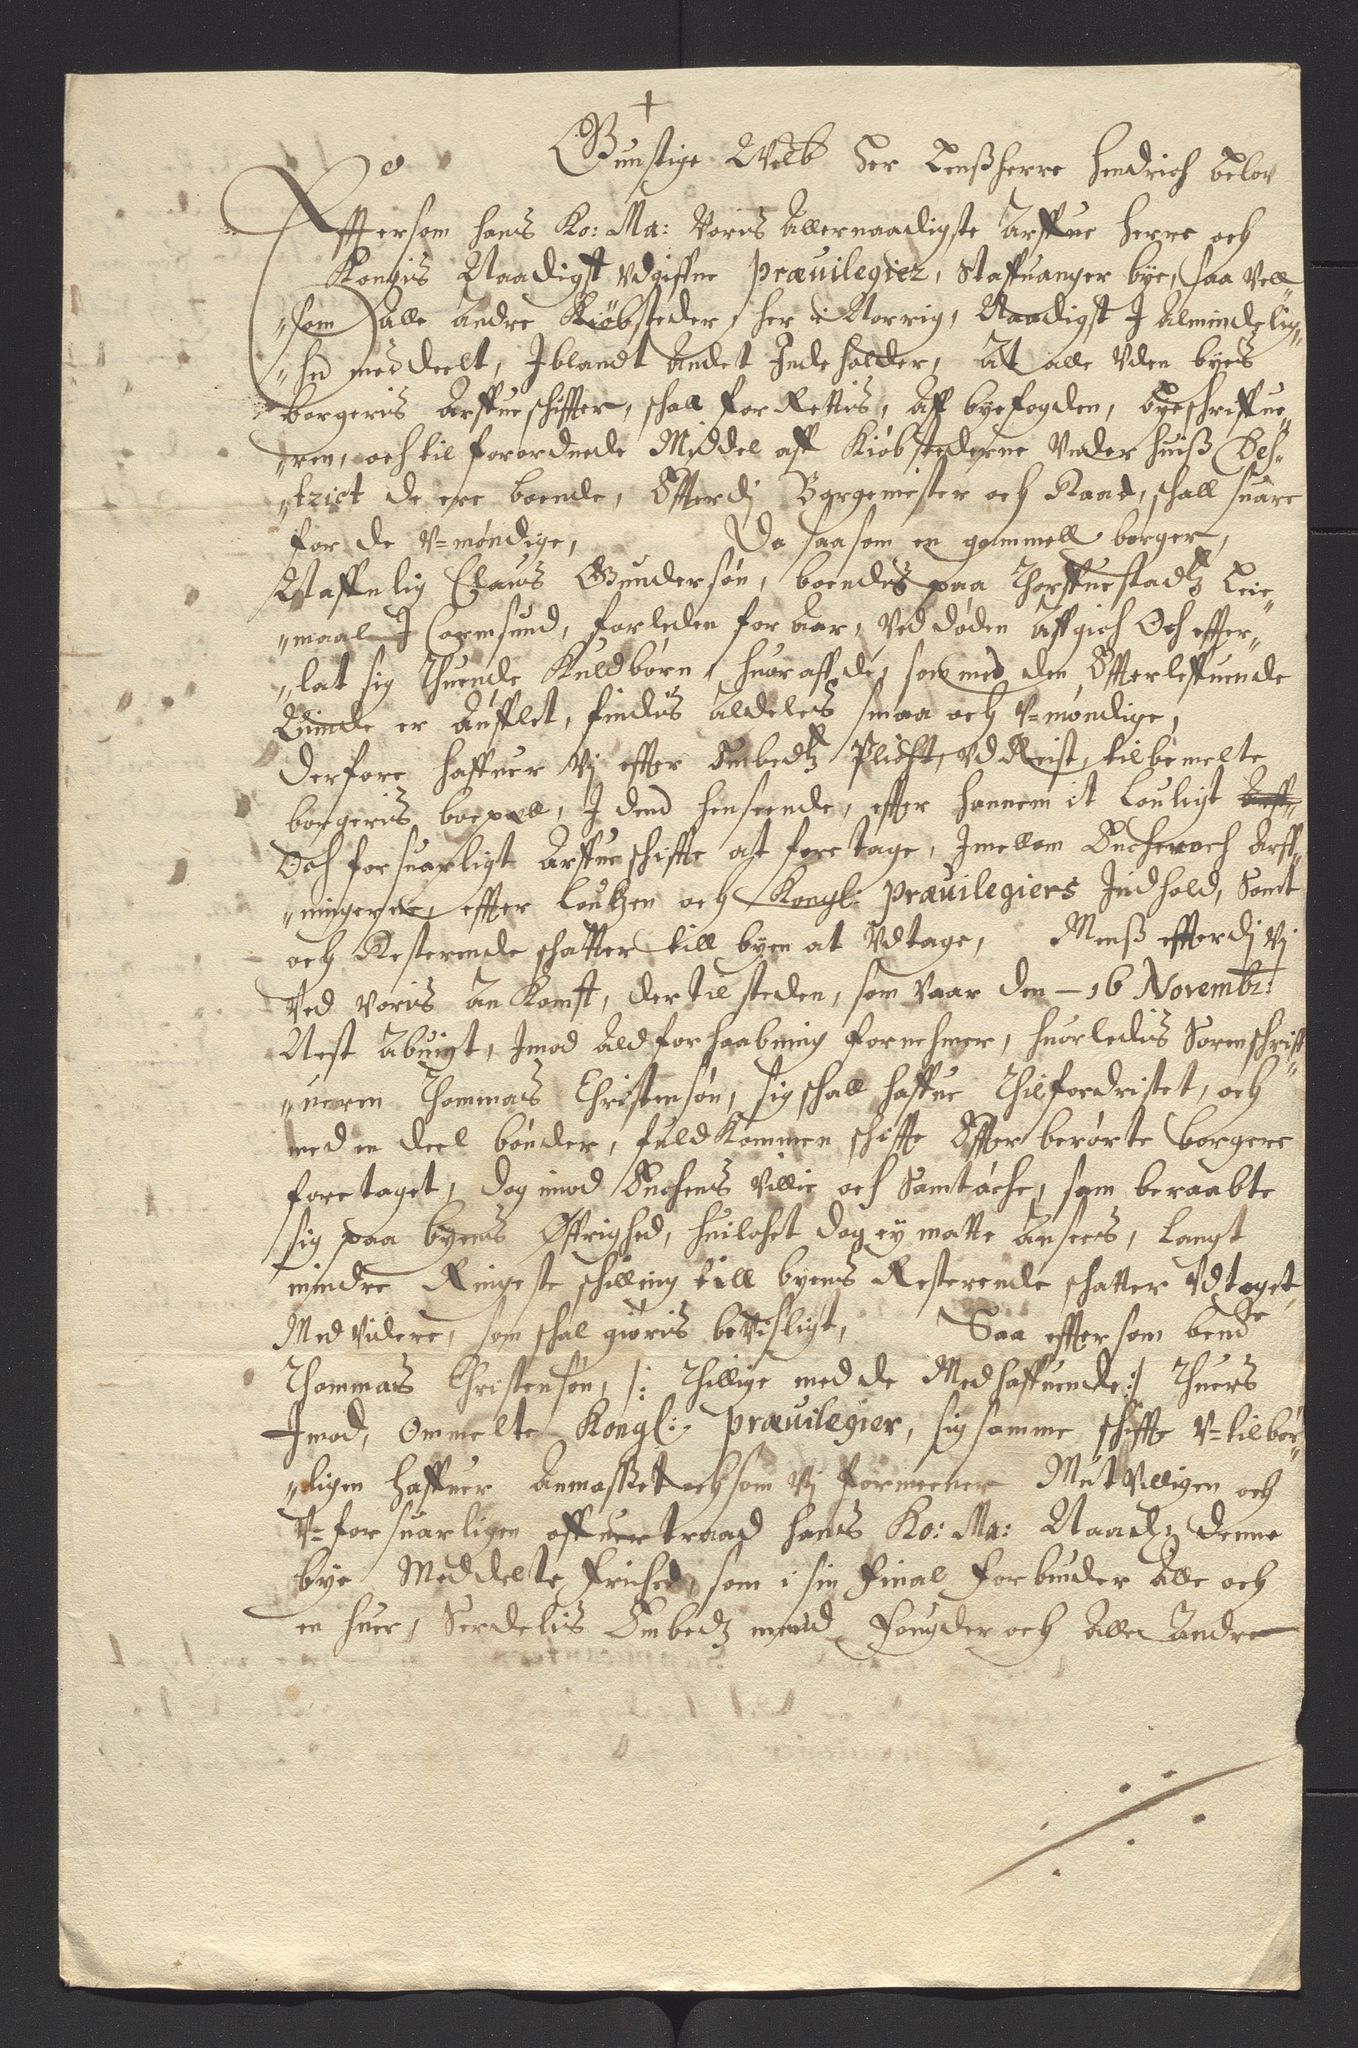 +
Gunstige Welb Her Lenßherre Hendrich Below
Effter som hans Ko: Ma: Voris Allernaadigste Arffue Herre och
Kongis Naadigst Vdgiffne Præuilegier, Staffuanger bye, saa vell
som alle andre Kiöbsteder her i Norrig, Naadigst J Almindelig„
„hed meddeelt, Jblandt Andet Jndeholder, At alle Vden byes
borgeris Arffueschiffter, schall forRettis, Aff byefogden, Byeschriffue„
„ren, och til forordnede Middel aff Kiöbstederne Vnder huiß Des„
„trict de ere boende, Effterdj Borgemester och Raad, schall suare
for de V=møndige, Da saasom en gammell borger,
Naffnlig Claus Gundersøn, boendes paa Thorffuestadtz Leie„
„maal J Carmsund, forleden for Aar, Ved døden Affgich Och effter„
„lat sig Thuende Kuldbørn, huoraff de, som med den Effterleffuende
Quinde er Aufflet, findis Aldeles smaa och V=møndige,
Derfore haffuer Vj effter Embedtz Plicht, VdReist, til bemelte
borgeris boepæll, J dend henseende, effter hannem it Louligt
Och forsuarligt Arffueschiffte at foretage, Jmellom Enchen och Arff„
„ningerne, effter Loughen och Kongl: Præuilegiers Jndhold, Samt
och Resterende schatter till byen at Vdtage, Menß effterdj Vj
Ved voris Ankomst, der til steden, som Vaar den – 16 Novembr:
Nest Abuigt, Jmod Ald forhaabning fornehmer, huorledis Sorenschriff„
„ueren Thommas Christensøn, sig schall haffue Thilfordristet, och
med en deel bønder, fuldkommen schiffte Effter berørte borgere
foretaget, dog imod Enchens Villie och Samtøche, som beraabte
sig paa byens Øffrighed, huilchet dog ey motte Ansees, Langt
mindre Ringeste schilling till byens Resterende schatter Vdtaget,
Med videre, som schal giøris bevisligt, Saa efftersom bemde
Thommas Christensøn, /: Thillige med de Medhaffuende :/ Thuers
Jmod, Ommelte Kongl: Præuilegier, sig samme schiffte V=tilbør„
„ligen haffuer Anmasset och som Vj formeener Mutvilligen och
V=forsuarligen offuertraad hans Ko: Ma: Naadz: denne
bye Meddelte Frihed, som i sin Final forbinder Alle och
en huer, Serdelis Embedz mend Fougder och Alle Andre